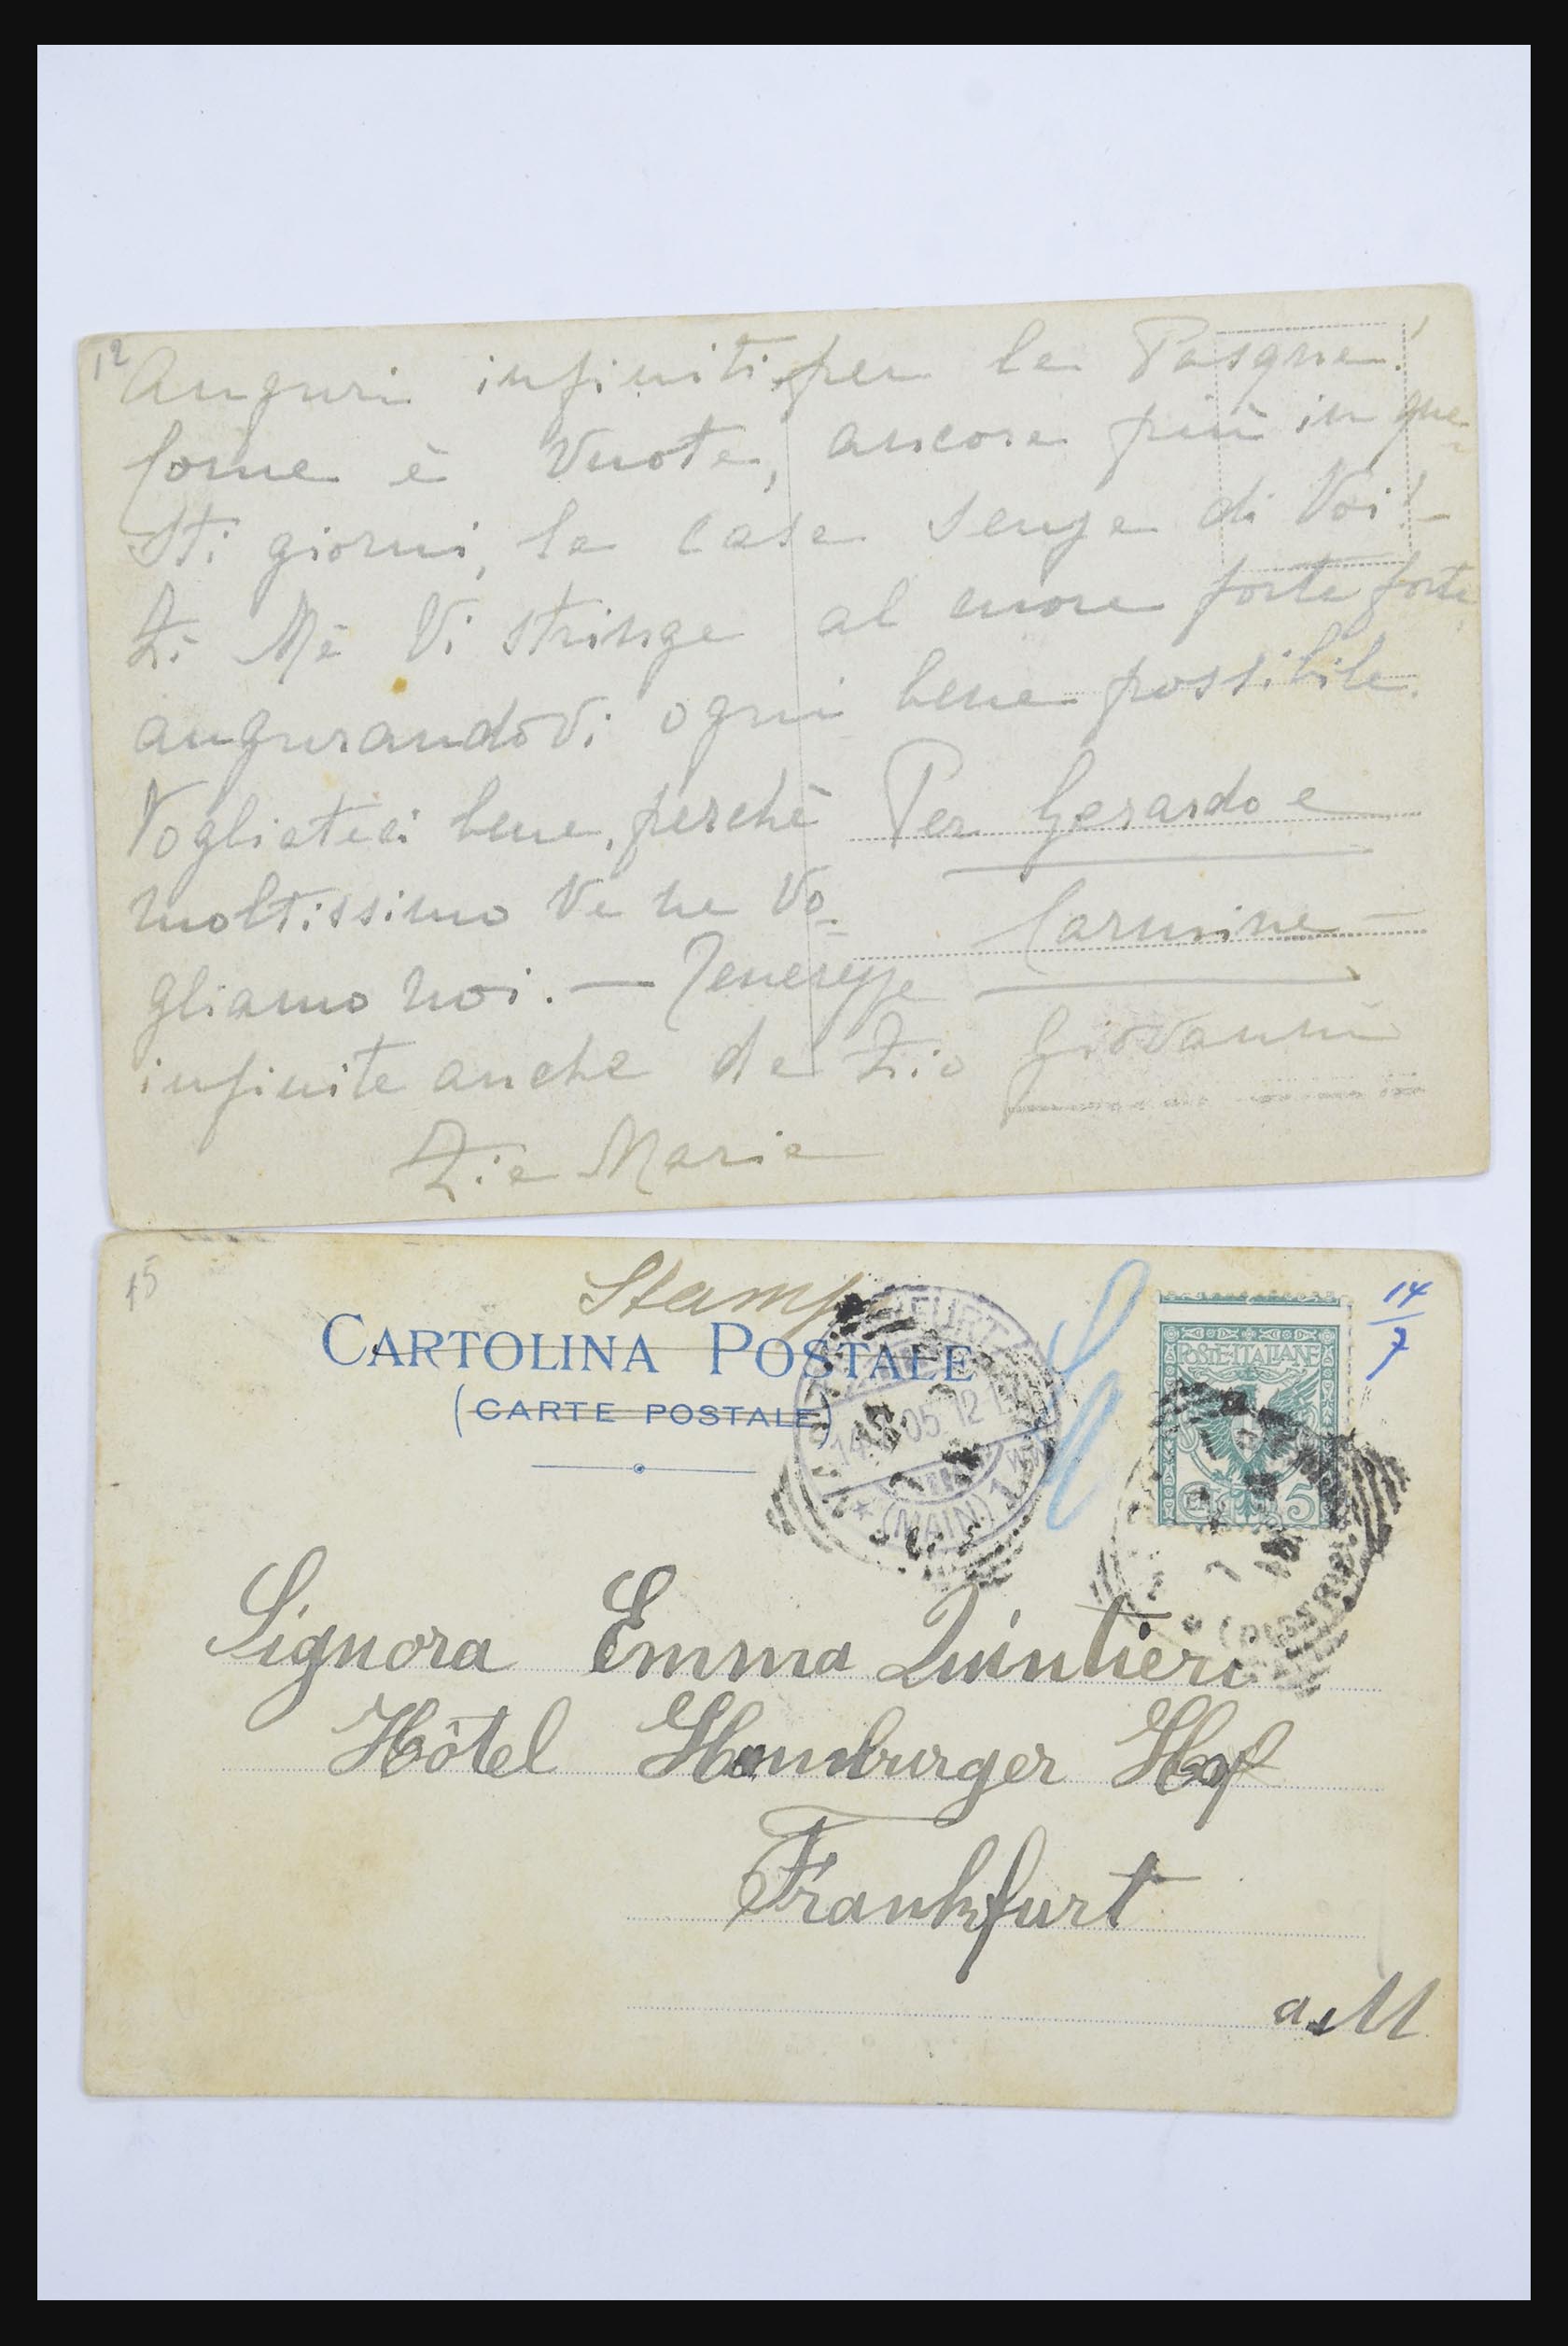 12
Auguri infiniti per la Pasqua!
Come è vuota, ancora più in que-
sti giorni, la casa senza di Voi! -
Zi Mè Vi stringe al cuore forte forte
augurandovi ogni bene possibile.
Vogliateci bene, perchè
moltissimo Ve ne vo-
gliamo noi. — Tenerezze
infinite anche da Zio Giovanni
Zia Maria
Per Gerardo e
Carmine —
15
Stampe
14
7
CARTOLINA POSTALE
(CARTE POSTALE)
POSTE·ITALIANE
CENT. 5
05 12-1
(MAIN) 1
Signora Emma Quintieri
Hôtel Homburger Hof
Frankfurt
a. M